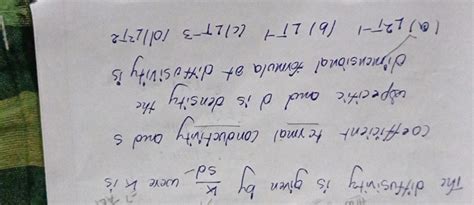 The diffusivity is given by K/sd were K is
coefficient termal conductivity and s
specific and d is density the
dimensional formula of diffusivity is
(a) L²T⁻¹ (b) LT⁻¹ (c) LT⁻³ (d) L²T²